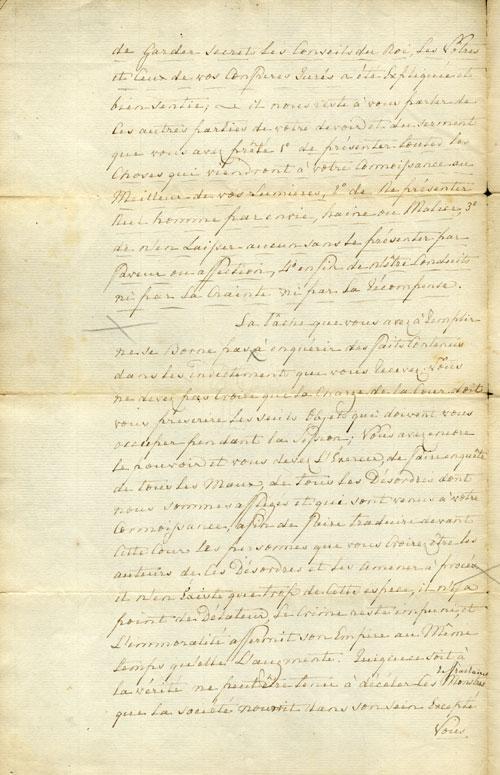 de Garder secrets les Conseils du Roi, les Vôtres
et Ceux de vos Confreres Jurés a été Expliquée et
bien sentie, & il nous reste à vous parler de
Ces autres parties de votre devoir et du serment
que vous avez prêté 1º de présenter toutes les
Choses qui viendront à vôtre Connoissance au
Meilleur de vos lumieres, 2º de Ne présenter
Nul homme par envie, haine ou Malice, 3º
de n'en Laisser aucun sans le présenter par
faveur ou affection, 4º enfin de n'être Conduits
ni par la Crainte ni par la récompense.
La Tache que vous avez à Remplir
ne se Borne pas à enquérir des faits Contenus
dans les Indictements que vous recevez. Vous
ne devez pas Croire que la Charge de la Cour doit
vous prescrire les seuls Objets qui doivent vous
occuper pendant la session; Vous avez encore
le pouvoir et vous devez L'Exercer, de faire enquête
de tous les Maux, de tous les Désordres dont
nous sommes affligés et qui sont venus à vôtre
Connoissance, afin de faire traduire devant
Cette Cour les personnes que vous Croirez être les
auteurs de Ces Désordres et les amener à procès
il n'en Existe que trop de Cette espece, il n'y a
point de Délateur, le Crime reste impuni, et
L'immoralité affermit son Empire au Même
temps qu'elle L'augmente. Quiconque soit à
la vérité ne peut être tenu à décéler les Monstres
que la société nourrit dans son sein Excepté
Vous